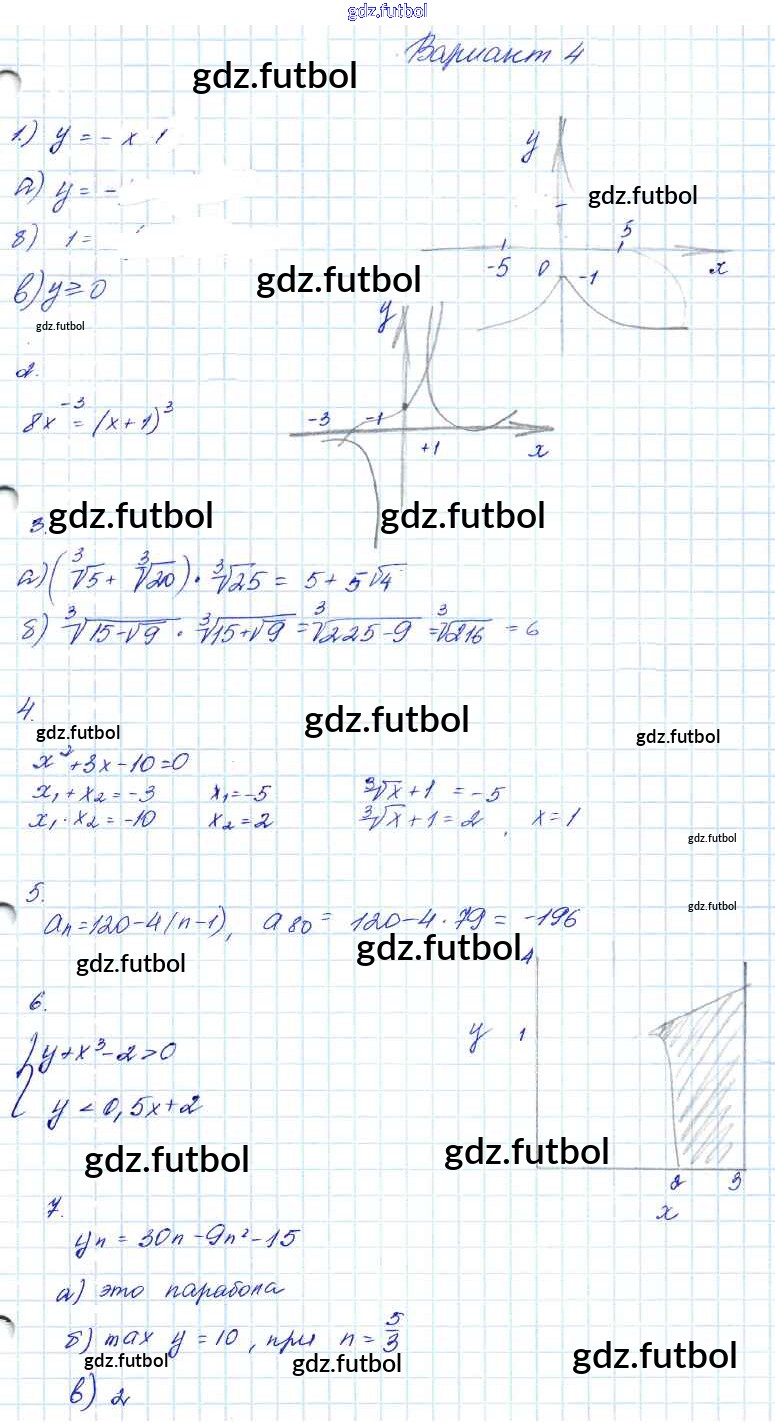 gdz.futbol
Вариант 4
gdz.futbol
1.) y = - x 1
а) y = -
y
gdz.futbol
б) 1 =
5
-5 0 -1 x
gdz.futbol
в) y ≥ 0
y
gdz.futbol
2.
8x⁻³ = (x+1)³
-3 -1
+1 x
3. gdz.futbol gdz.futbol
а) (∛5 + ∛20) · ∛25 = 5 + 5√4
б) ∛(15-√9) · ∛(15+√9) = ∛(225-9) = ∛216 = 6
4.
gdz.futbol gdz.futbol gdz.futbol
x²+3x-10=0
x₁+x₂=-3 x₁=-5 ∛x+1 = -5
x₁·x₂=-10 x₂=2 ∛x+1=2, x=1
gdz.futbol
5.
gdz.futbol
aₙ=120-4(n-1), a₈₀= 120-4·79 = -196
gdz.futbol gdz.futbol
4
6.
y 1
y+x³-2>0
y<0,5x+2
gdz.futbol gdz.futbol
2 3
x
7.
yₙ = 30n-9n²-15
а) это парабола
б) max y = 10, при n = 5/3
gdz.futbol gdz.futbol gdz.futbol
в) 2